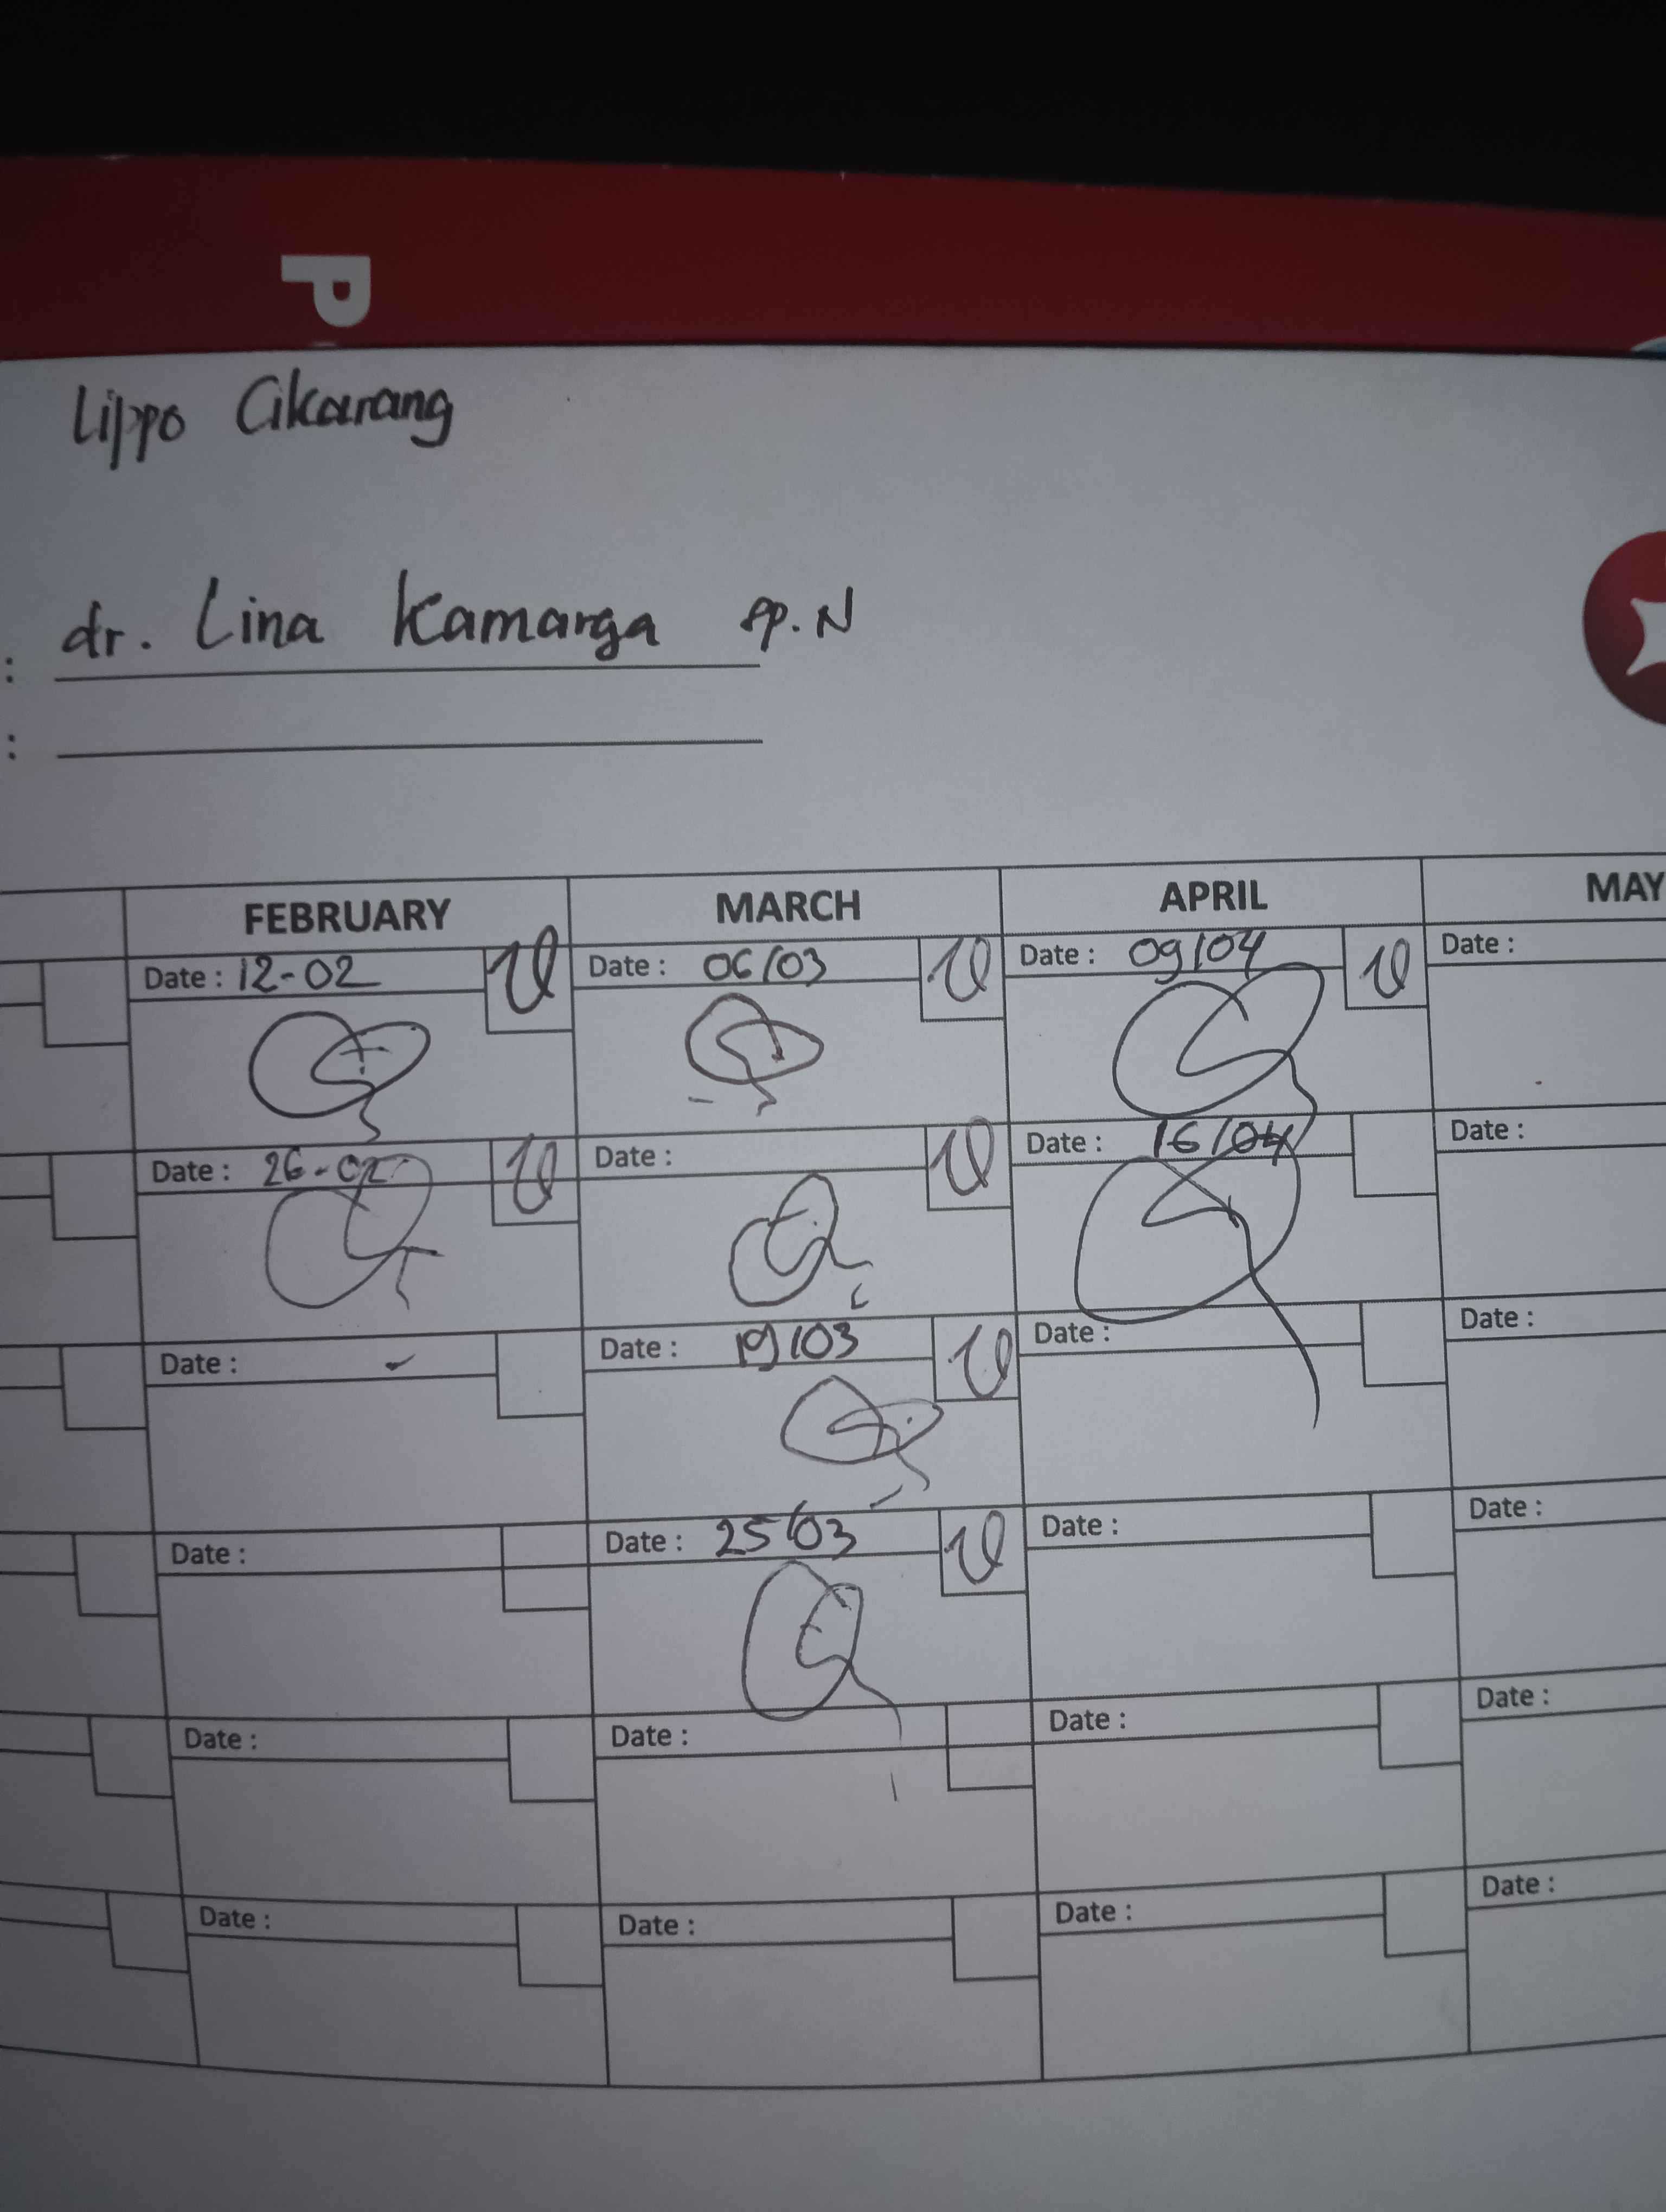 P
Lippo Cikarang
: dr. Lina Kamarga sp.N
:
FEBRUARY MARCH APRIL MAY
Date : 12-02 Date : 06/03 Date : 09/04 Date :
Date : 26-02 Date : Date : 16/04 Date :
Date : Date : 19/03 Date : Date :
Date : Date : 25/03 Date : Date :
Date : Date : Date : Date :
Date : Date : Date : Date :